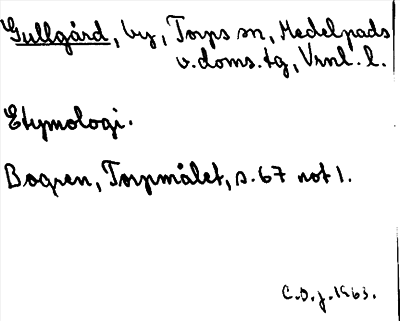 Gullgård, by, Torps sn, Medelpads
v. doms. tg, Vrnl. l.
Etymologi.
Bogren, Torpmålet, s. 67 not 1.
C.O.j. 1963.